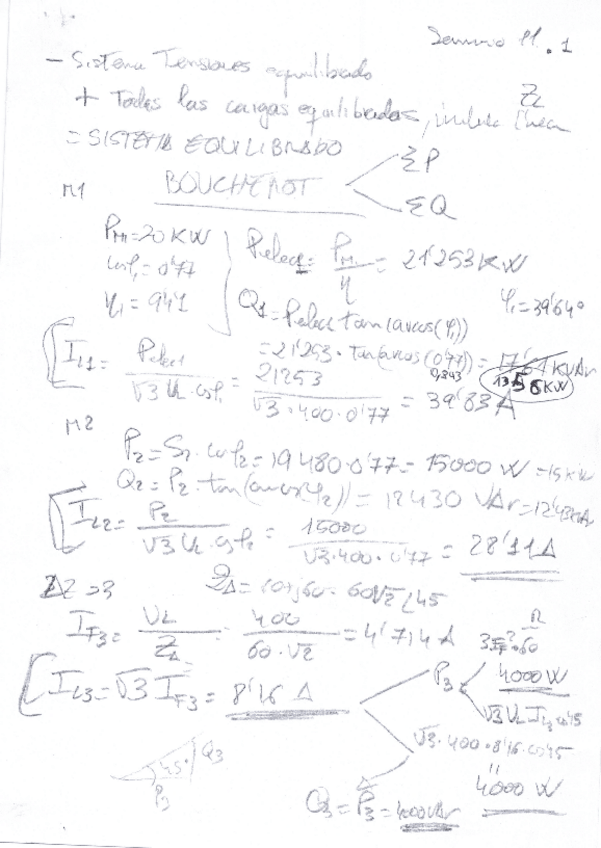 11.1
- Sistema Tensiones equilibrado
+ Todas las cargas equilibradas, incluso línea Z_L
= SISTEMA EQUILIBRADO
BOUCHEROT ΣP
ΣQ
M1
P_M1 = 20 KW
cosφ₁ = 0'77
η₁ = 94'1
Pelec1 = P_M1 / η = 21'253 KW
Q1 = Pelec tan(arcos(φ₁)) φ₁ = 39'64º
= 21'253 · Tan(arcos(0'77)) = 17'61 KVAr
I_L1 = Pelec / √3 U_L cosφ₁ = 21253 / √3 · 400 · 0'77 = 39'83 A
M2
P₂ = S₂ · cosφ₂ = 19480 · 0'77 = 15000 W = 15 KW
Q₂ = P₂ · tan(arcosφ₂)) = 12430 VAr = 12'43 KVAr
I_L2 = P₂ / √3 U_L · cosφ₂ = 15000 / √3 · 400 · 0'77 = 28'11 A
Z_Δ = 60+j60 = 60√2 ∠45
I_F3 = U_L / Z_Δ = 400 / 60 · √2 = 4'714 A
3I_F² · 60
I_L3 = √3 I_F3 = 8'16 A
P₃ = 4000 W
√3 U_L I_L3 cos45
√3 · 400 · 8'16 · cos45
4000 W
45º Q₃
P₃
Q₃ = P₃ = 4000 VAr